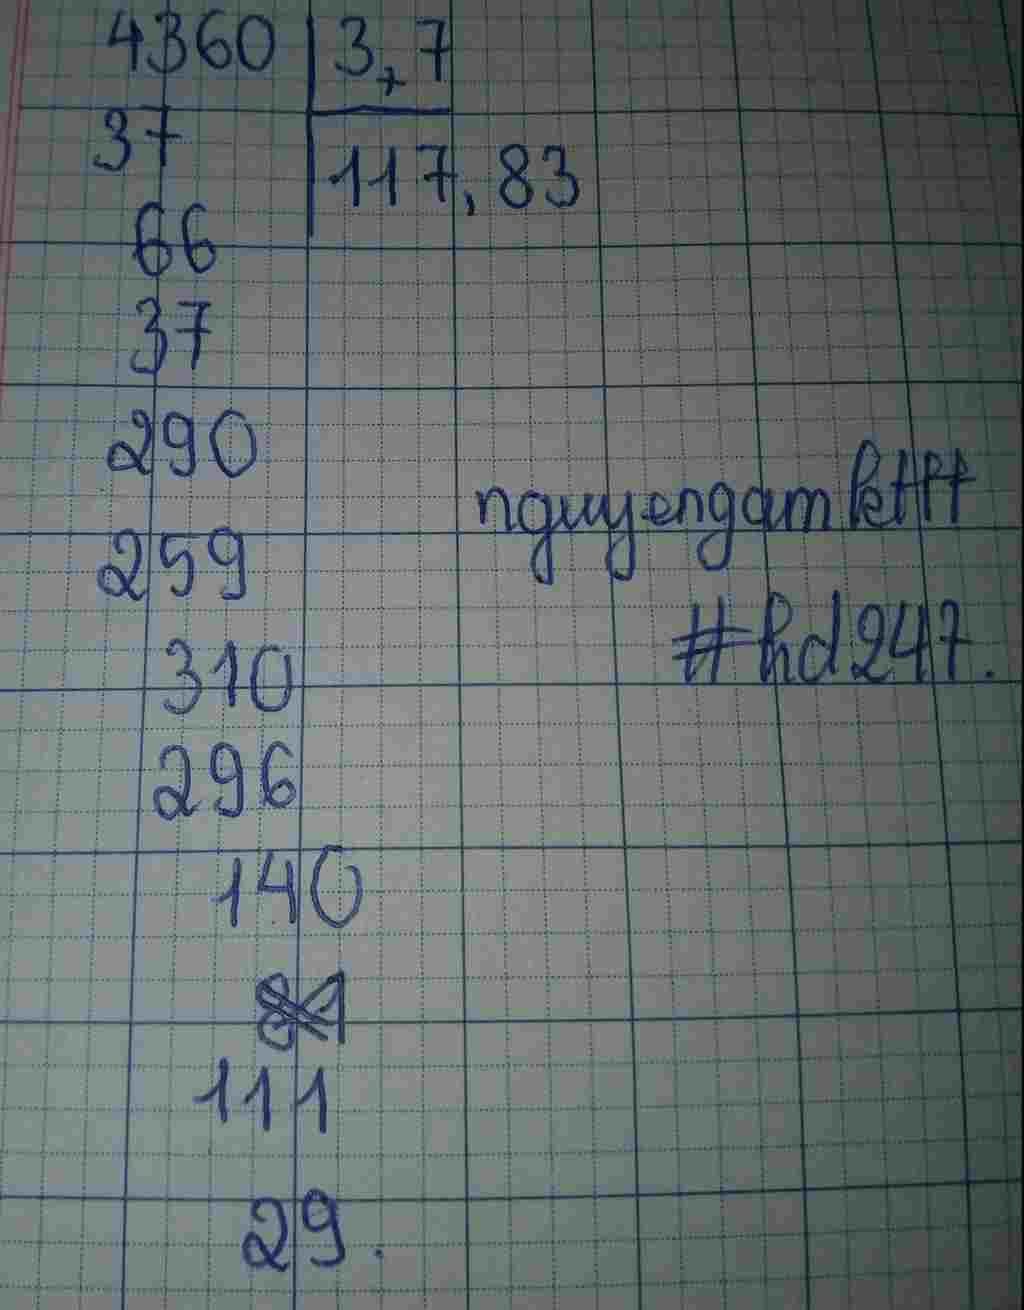 4360 3,7
37 117,83
66
37
290
259 nguyengamktltt
310 #hd247.
296
140
111
29.